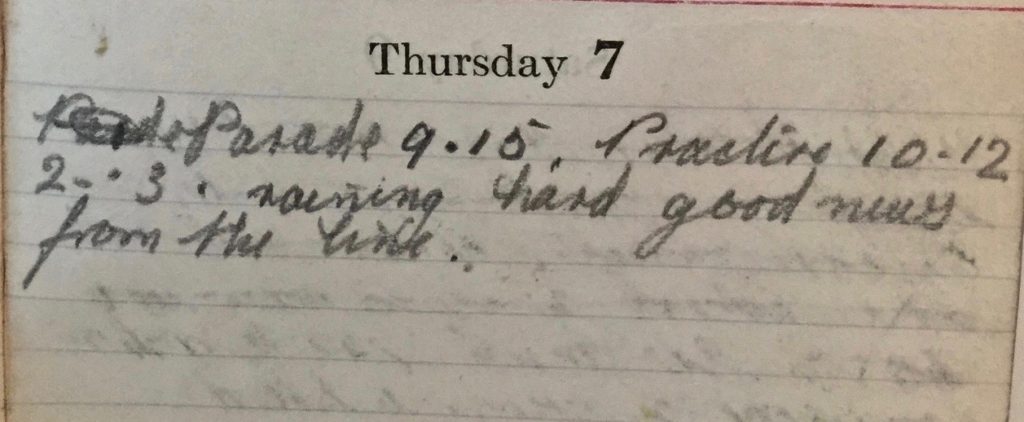 Thursday 7
Parade 9.15. Practice 10-12
2-3. raining hard good news
from the line.